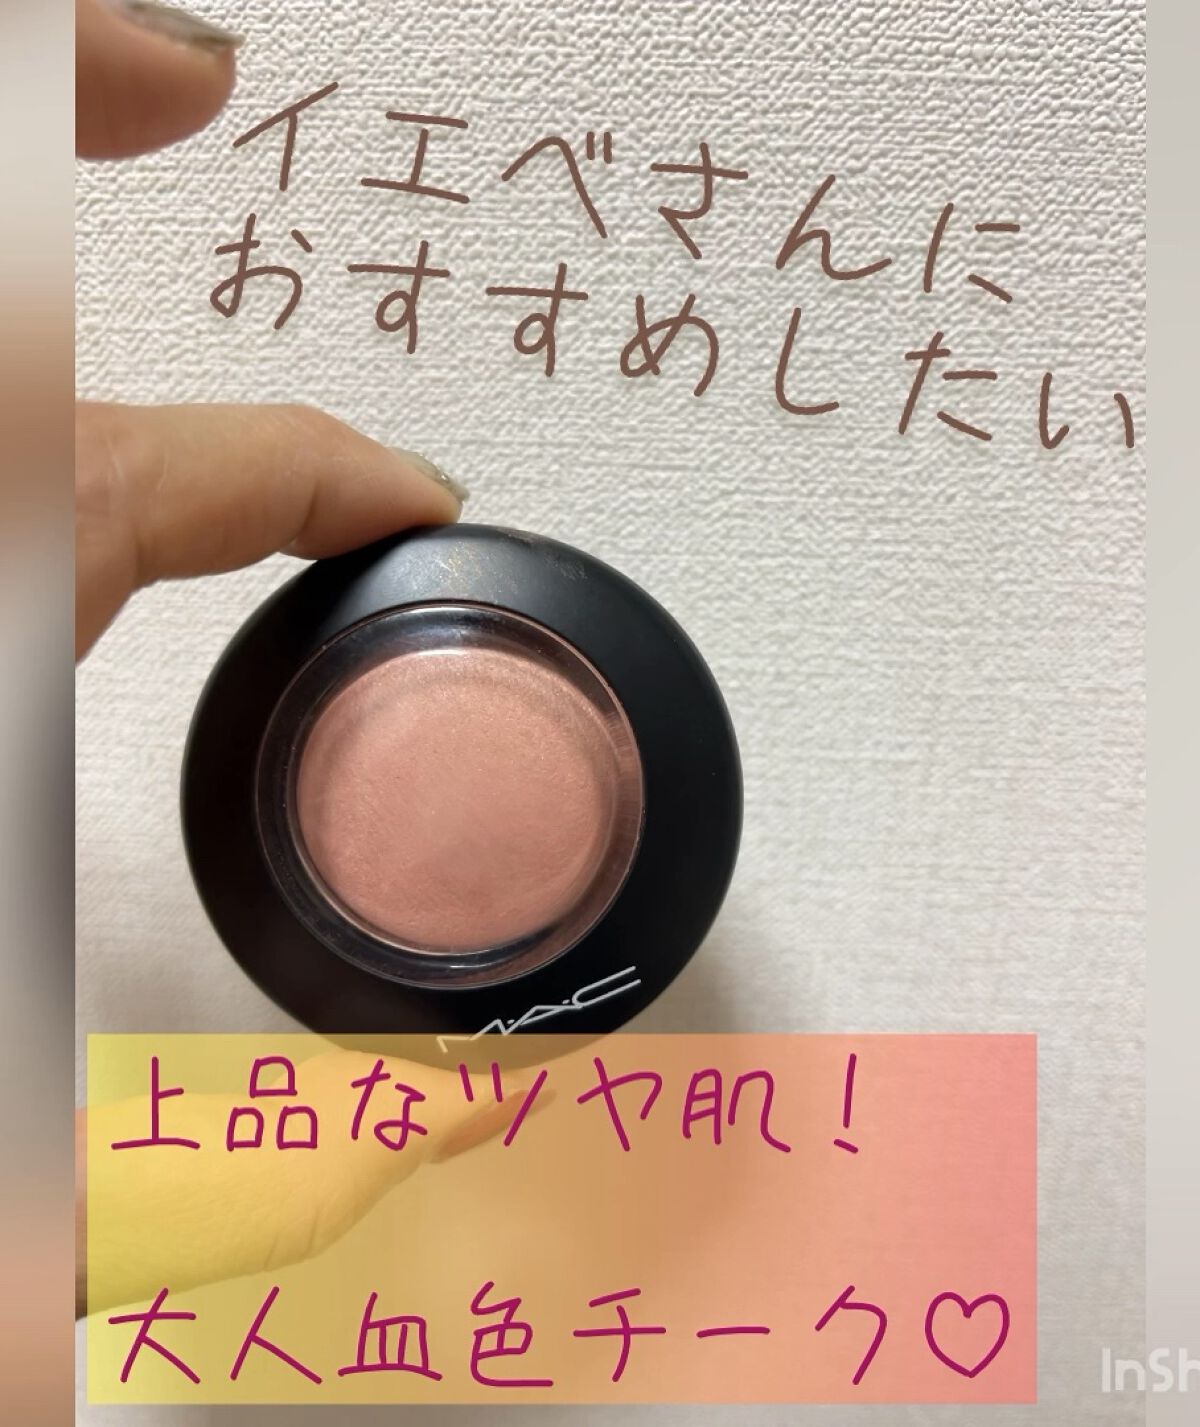 イエベさんに
おすすめしたい
M·A·C
上品なツヤ肌！
大人血色チーク♡
InSh